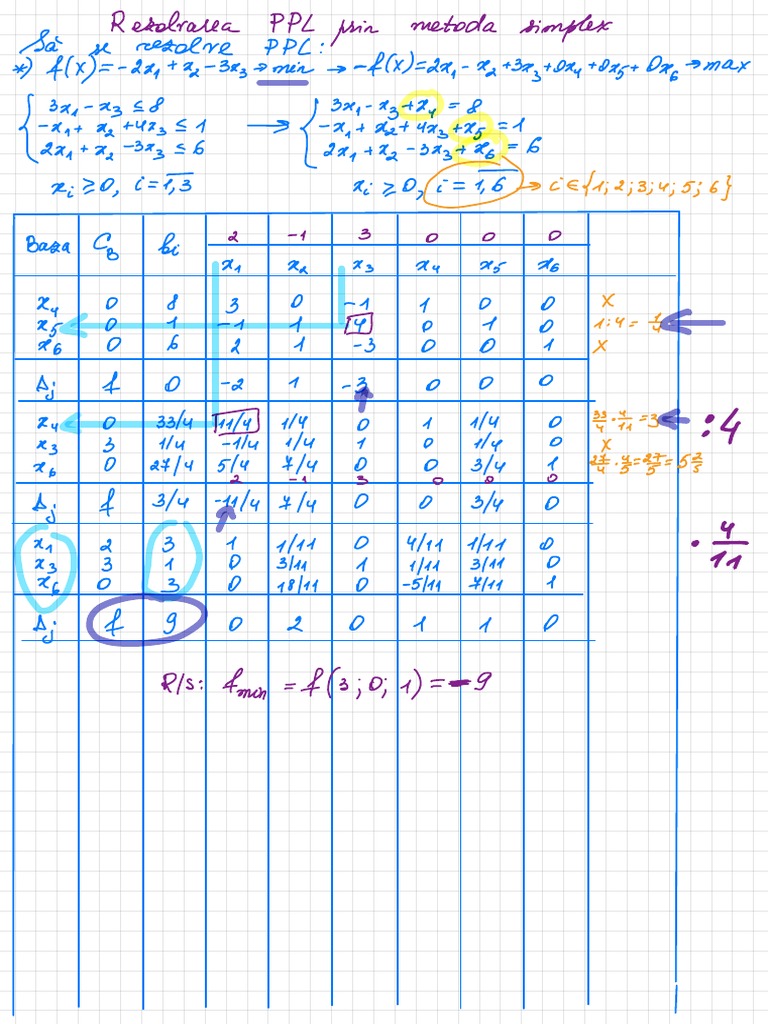 Rezolvarea PPL prin metoda simplex
Să se rezolve PPL:
*) f(x)=-2x₁+x₂-3x₃→min → -f(x)=2x₁-x₂+3x₃+0x₄+0x₅+0x₆→max
3x₁-x₃≤8 3x₁-x₃+x₄=8
-x₁+x₂+4x₃≤1 → -x₁+x₂+4x₃+x₅=1
2x₁+x₂-3x₃≤6 2x₁+x₂-3x₃+x₆=6
xᵢ≥0, i=1,3 xᵢ≥0, i=1,6 → i∈{1;2;3;4;5;6}
Baza C_B bi 2 -1 3 0 0 0
x₁ x₂ x₃ x₄ x₅ x₆
x₄ 0 8 3 0 -1 1 0 0 X
x₅ 0 1 -1 1 4 0 1 0 1:4=1/4
x₆ 0 6 2 1 -3 0 0 1 X
Δj f 0 -2 1 -3 0 0 0
x₄ 0 33/4 11/4 1/4 0 1 1/4 0 33/4·4/11=3 :4
x₃ 3 1/4 -1/4 1/4 1 0 1/4 0 X
x₆ 0 27/4 5/4 7/4 0 0 3/4 1 27/4·4/5=27/5=5 2/5
2 -1 3 0 0 0
Δj f 3/4 -11/4 7/4 0 0 3/4 0
x₁ 2 3 1 1/11 0 4/11 1/11 0 ·4/11
x₃ 3 1 0 3/11 1 1/11 3/11 0
x₆ 0 3 0 18/11 0 -5/11 7/11 1
Δj f 9 0 2 0 1 1 0
R/s: f_min = f(3;0;1)=-9